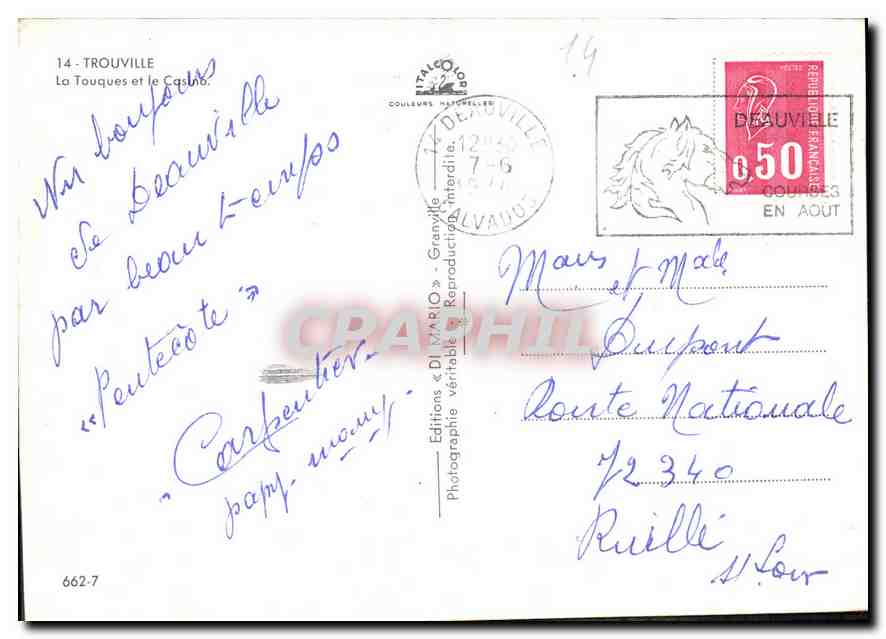 14 - TROUVILLE
La Touques et le Casino.
Un bonjour
de Deauville
par beau temps
"Pentecôte"
Carpentier
papy. mamy.
662-7
ITALCOLOR
COULEURS NATURELLES
Editions « DI MARIO » - Granville
Photographie véritable - Reproduction interdite.
CRAPHIL
14
14 DEAUVILLE
7-6
CALVADOS
DEAUVILLE
COURSES
EN AOUT
POSTES
REPUBLIQUE FRANÇAISE
0,50
et
Dupont
Route Nationale
72340
Ruillé
s/ Loir